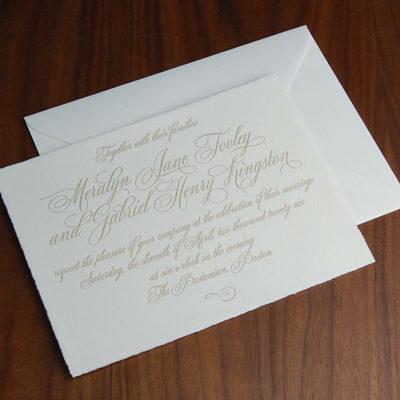 Together with their families
Meralyn Jane Tooley
and Gabriel Henry Kingston
request the pleasure of your company at the celebration of their marriage
Saturday, the eleventh of April, two thousand twenty-six
at six o'clock in the evening
The Bostonian, Boston